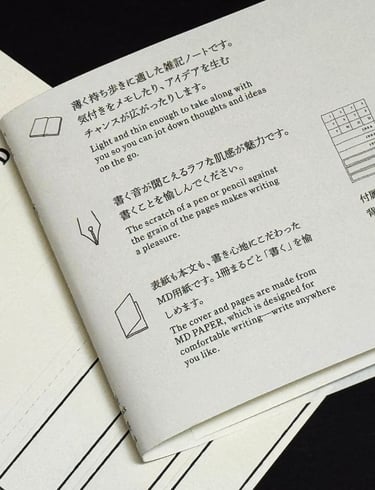 薄く持ち歩きに適した雑記ノートです。
気付きをメモしたり、アイデアを生む
チャンスが広がったりします。
Light and thin enough to take along with
you so you can jot down thoughts and ideas
on the go.
書く音が聞こえるラフな肌感が魅力です。
書くことを愉しんでください。
The scratch of a pen or pencil against
the grain of the pages makes writing
a pleasure.
表紙も本文も、書き心地にこだわった
MD用紙です。1冊まるごと「書く」を愉
しめます。
The cover and pages are made from
MD PAPER, which is designed for
comfortable writing—write anywhere
you like.
付属